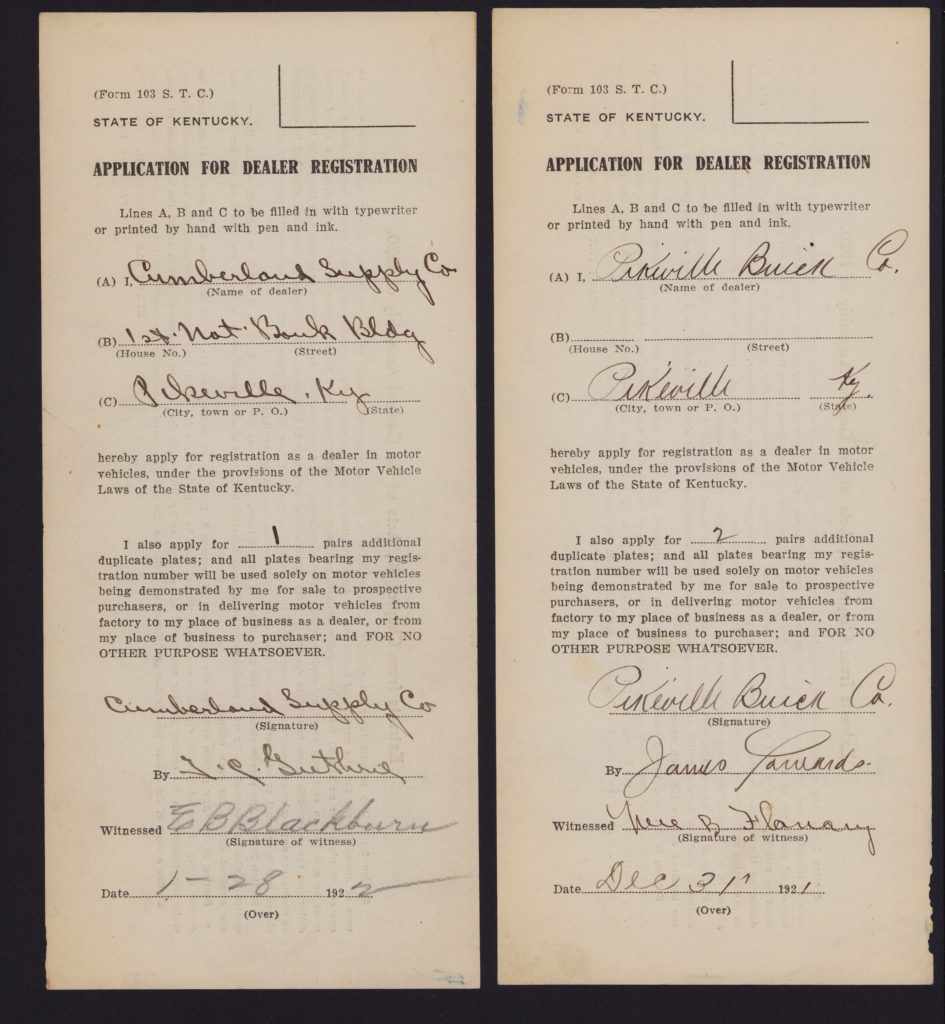 (Form 103 S. T. C.)
STATE OF KENTUCKY.
APPLICATION FOR DEALER REGISTRATION
Lines A, B and C to be filled in with typewriter
or printed by hand with pen and ink.
(A) I, Cumberland Supply Co
(Name of dealer)
(B) 1st. Nat. Bank Bldg
(House No.) (Street)
(C) Pikeville, Ky
(City, town or P. O.) (State)
hereby apply for registration as a dealer in motor
vehicles, under the provisions of the Motor Vehicle
Laws of the State of Kentucky.
I also apply for 1 pairs additional
duplicate plates; and all plates bearing my regis-
tration number will be used solely on motor vehicles
being demonstrated by me for sale to prospective
purchasers, or in delivering motor vehicles from
factory to my place of business as a dealer, or from
my place of business to purchaser; and FOR NO
OTHER PURPOSE WHATSOEVER.
Cumberland Supply Co
(Signature)
By Guthrie
Witnessed E B Blackburn
(Signature of witness)
Date 1-28 1922
(Over)
(Form 103 S. T. C.)
STATE OF KENTUCKY.
APPLICATION FOR DEALER REGISTRATION
Lines A, B and C to be filled in with typewriter
or printed by hand with pen and ink.
(A) I, Pikeville Buick Co.
(Name of dealer)
(B)
(House No.) (Street)
(C) Pikeville Ky.
(City, town or P. O.) (State)
hereby apply for registration as a dealer in motor
vehicles, under the provisions of the Motor Vehicle
Laws of the State of Kentucky.
I also apply for 2 pairs additional
duplicate plates; and all plates bearing my regis-
tration number will be used solely on motor vehicles
being demonstrated by me for sale to prospective
purchasers, or in delivering motor vehicles from
factory to my place of business as a dealer, or from
my place of business to purchaser; and FOR NO
OTHER PURPOSE WHATSOEVER.
Pikeville Buick Co.
(Signature)
By James
Witnessed B Flanary
(Signature of witness)
Date Dec 31 1921
(Over)